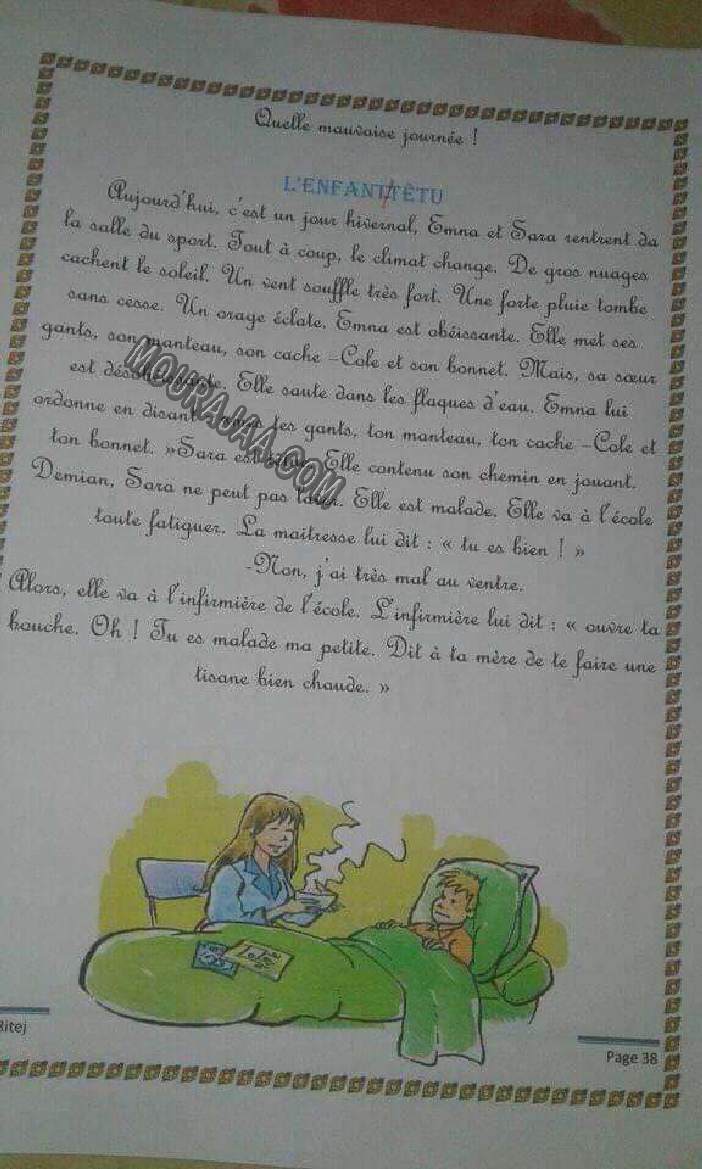 Quelle mauvaise journée !
L'ENFANT/TÊTU
Aujourd'hui, c'est un jour hivernal, Emna et Sara rentrent da
la salle du sport. Tout à coup, le climat change. De gros nuages
cachent le soleil. Un vent souffle très fort. Une forte pluie tombe
sans cesse. Un orage éclate. Emna est obéissante. Elle met ses
gants, son manteau, son cache –Cole et son bonnet. Mais, sa sœur
est désobéissante. Elle saute dans les flaques d'eau. Emna lui
ordonne en disant tes gants, ton manteau, ton cache –Cole et
ton bonnet. »Sara est Elle contenu son chemin en jouant.
Demian, Sara ne peut pas Elle est malade. Elle va à l'école
toute fatiguer. La maitresse lui dit : « tu es bien ! »
-Non, j'ai très mal au ventre.
Alors, elle va à l'infirmière de l'école. L'infirmière lui dit : « ouvre ta
bouche. Oh ! Tu es malade ma petite. Dit à ta mère de te faire une
tisane bien chaude. »
MOURAJAA.COM
Ritej
Page 38